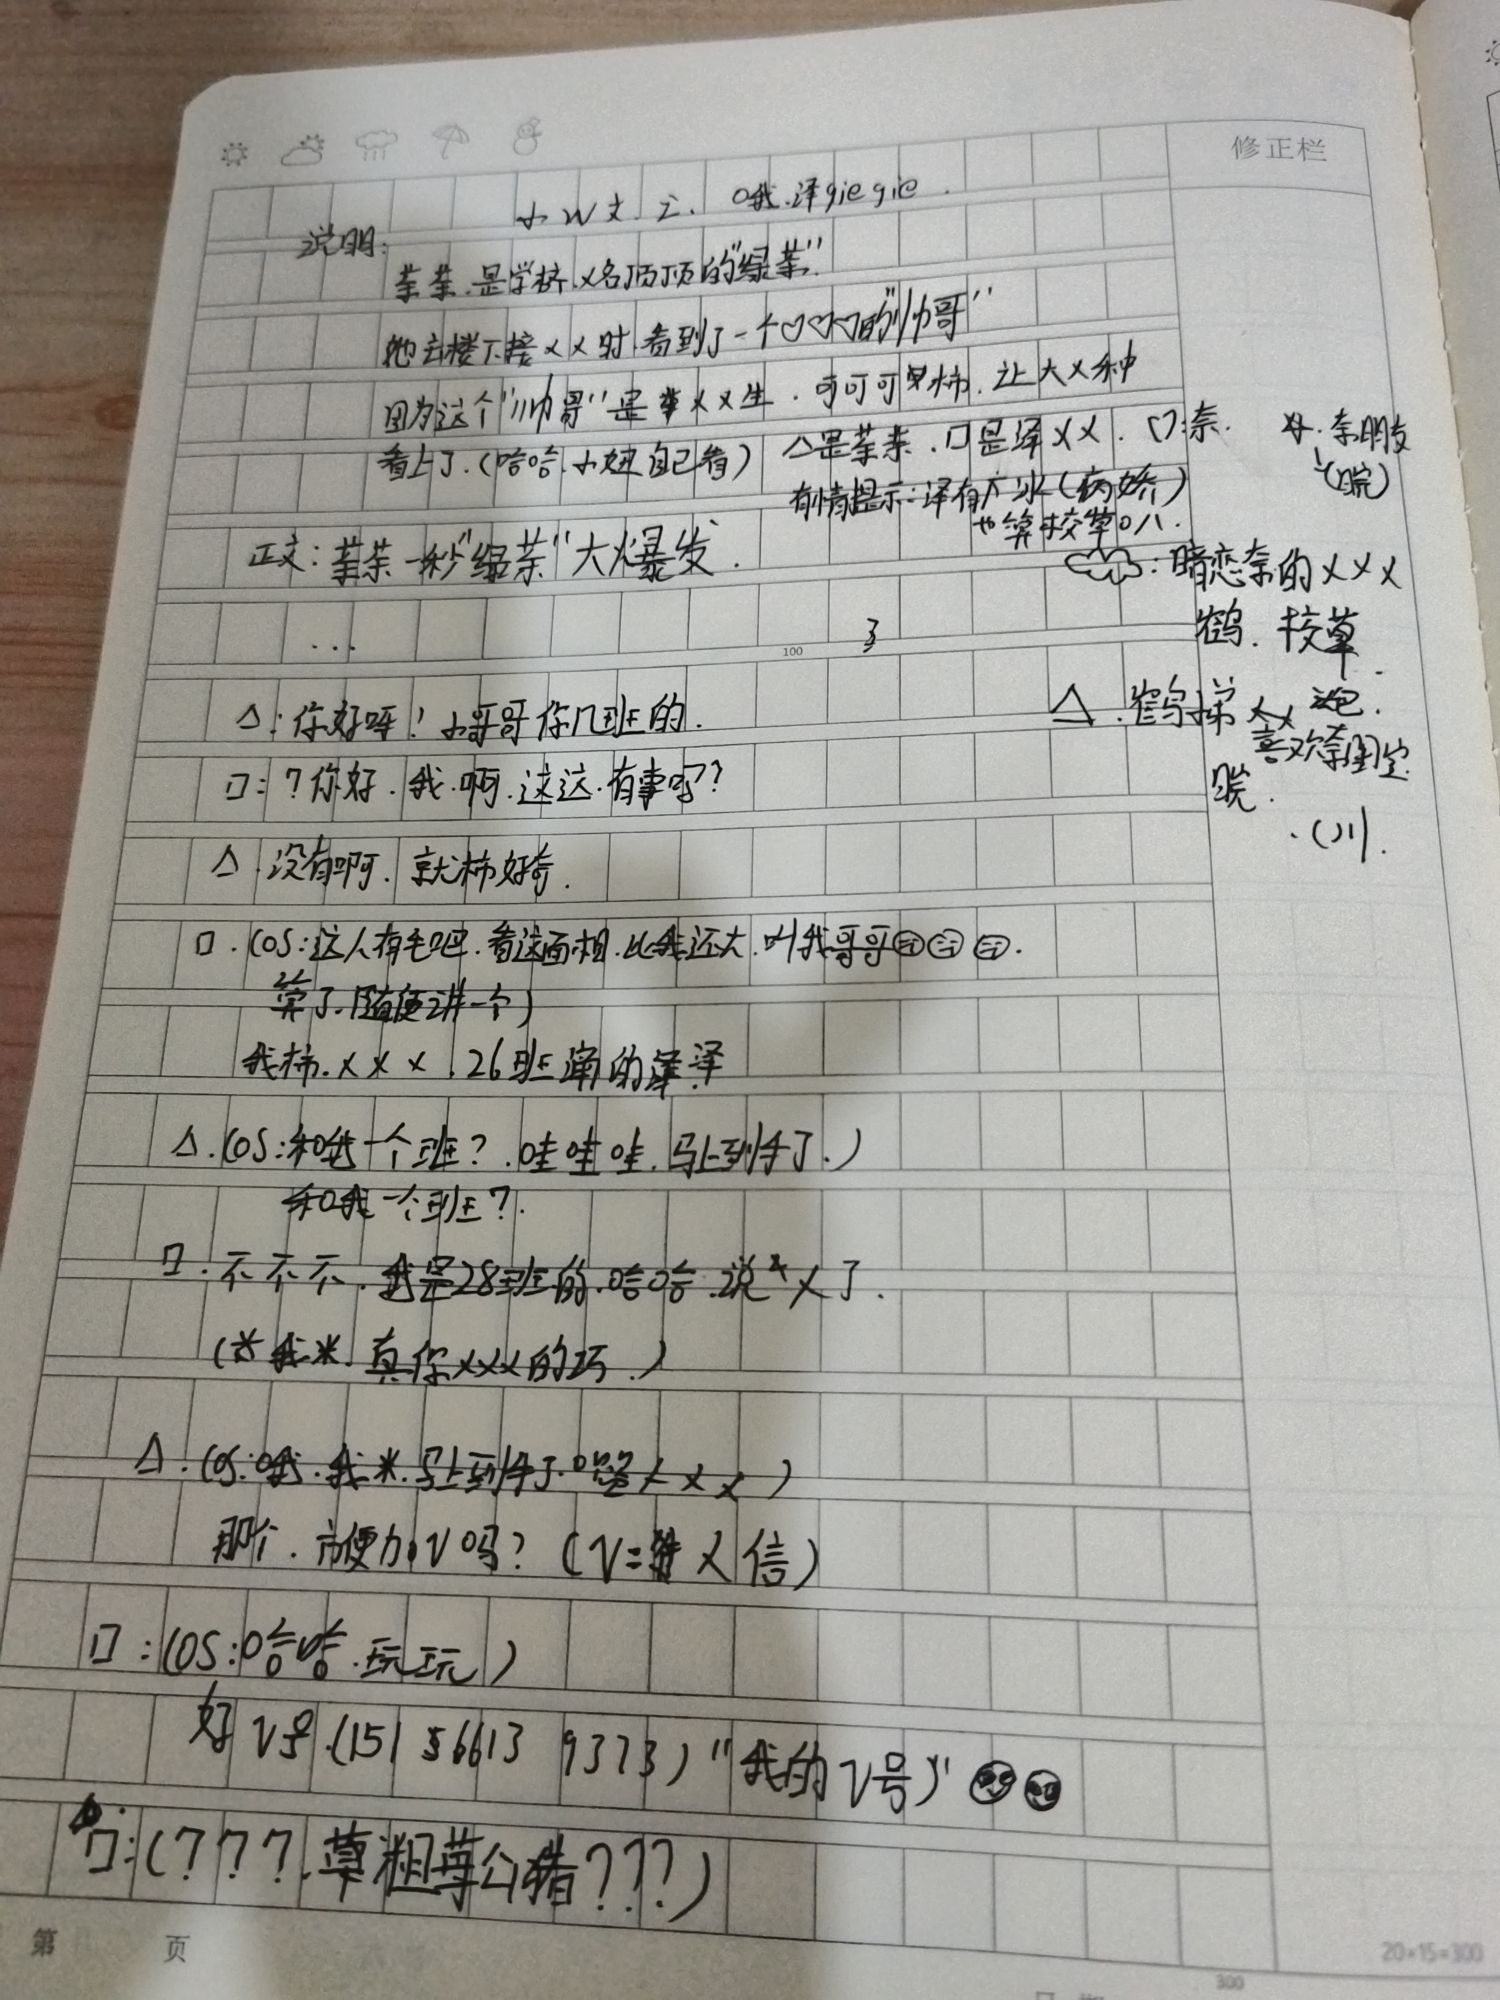 修正栏
小W文.之. 哦.泽giegie.
说明:
茉茉.是学桥.x名顶顶的"绿茶".
她去楼下接xx时.看到了一个♡♡♡的"帅哥"
因为这个"帅哥"是xx生.可可可.让大x种
看上了.(哈哈.小妞自己看) △是茉茉.口是泽xx.
有情提示:泽有(病娇)
也算校草
正文:茉茉一秒"绿茶"大爆发.
:暗恋奈的xxx
鹤.校草.
...
100
△:你好呀!小哥哥你几班的.
喜欢奈
口:?你好.我.啊.这这.有事吗?
△.没有啊.就柿好奇.
口.(OS:这人有毛吧.看这面相.比我还大.叫我哥哥
算了.随便讲一个)
我柿.xxx.26班的泽泽
△.(OS:和我一个班?.哇哇哇.马上到手了.)
和我一个班?.
口.不不不.我是28班的.哈哈.说x了.
(我米.真你xxx的巧.)
△.(OS:哦.我米.马上到手了.xxx)
那个.方便加V吗?(V=x信)
口:(OS:哈哈.玩玩)
好V号.(151 56613 9373)"我的V号)"
口:(???.草粗草公猪???)
第 页
20×15=300
300